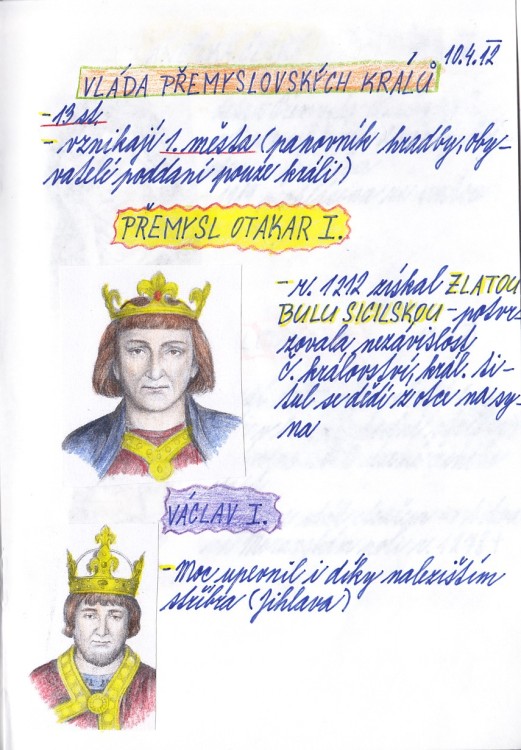 10.4.12
VLÁDA PŘEMYSLOVSKÝCH KRÁLŮ
- 13 st.
- vznikají 1. města (panovník hradby, oby-
vatelé poddaní pouze králi)
PŘEMYSL OTAKAR I.
- r. 1212 získal ZLATOU
BULU SICILSKOU - potvr-
zovala nezávislost
č. království, král. ti-
tul se dědí z otce na sy-
na
VÁCLAV I.
- Moc upevnil i díky nalezištím
stříbra (Jihlava)